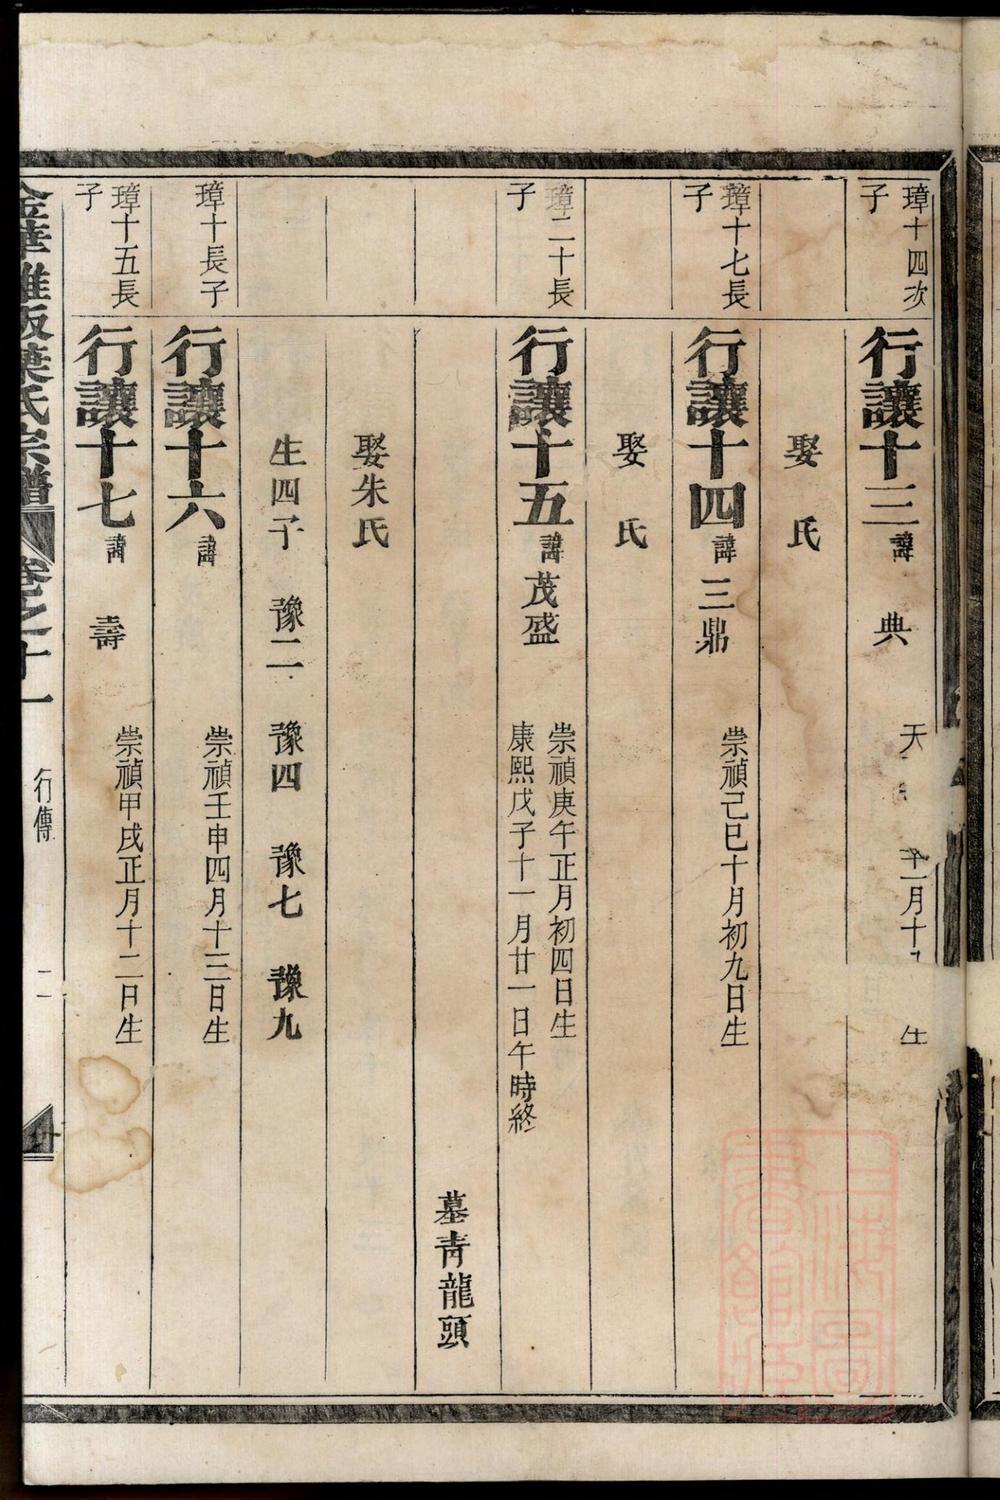 璋十四次
子
行讓十三 諱 典
天
月十
生
娶 氏
璋十七長
子
行讓十四 諱 三鼎
崇禎己巳十月初九日生
娶 氏
璋二十長
子
行讓十五 諱 茂盛
崇禎庚午正月初四日生
康熙戊子十一月廿一日午時終
墓青龍頭
娶朱氏
生四子 豫二 豫四 豫七 豫九
璋十長子
行讓十六 諱
崇禎壬申四月十三日生
璋十五長
子
行讓十七 諱 壽
崇禎甲戌正月十二日生
金華雅畈葉氏宗譜 卷之十一 行傳 二
上海圖
書館藏